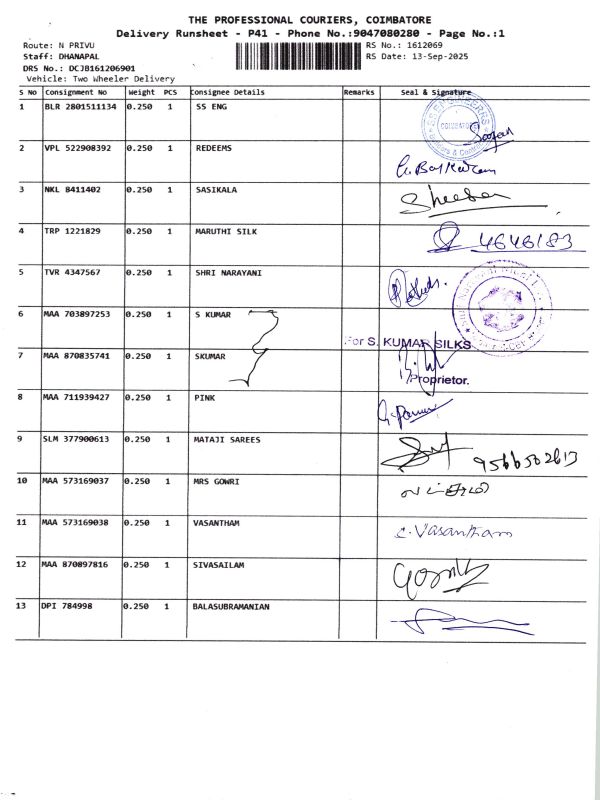 THE PROFESSIONAL COURIERS, COIMBATORE
Delivery Runsheet - P41 - Phone No.:9047080280 - Page No.:1
Route: N PRIVU RS No.: 1612069
Staff: DHANAPAL RS Date: 13-Sep-2025
DRS No.: DCJB161206901
Vehicle: Two Wheeler Delivery
S No Consignment No Weight PCS Consignee Details Remarks Seal & Signature
1 BLR 2801511134 0.250 1 SS ENG
2 VPL 522908392 0.250 1 REDEEMS
3 NKL 8411402 0.250 1 SASIKALA Sheeba
4 TRP 1221829 0.250 1 MARUTHI SILK 4646183
5 TVR 4347567 0.250 1 SHRI NARAYANI
6 MAA 703897253 0.250 1 S KUMAR
For S. KUMAR SILKS
7 MAA 870835741 0.250 1 SKUMAR
Proprietor.
8 MAA 711939427 0.250 1 PINK
9 SLM 377900613 0.250 1 MATAJI SAREES 9566502613
10 MAA 573169037 0.250 1 MRS GOWRI
11 MAA 573169038 0.250 1 VASANTHAM C. Vasantham
12 MAA 870897816 0.250 1 SIVASAILAM
13 DPI 784998 0.250 1 BALASUBRAMANIAN